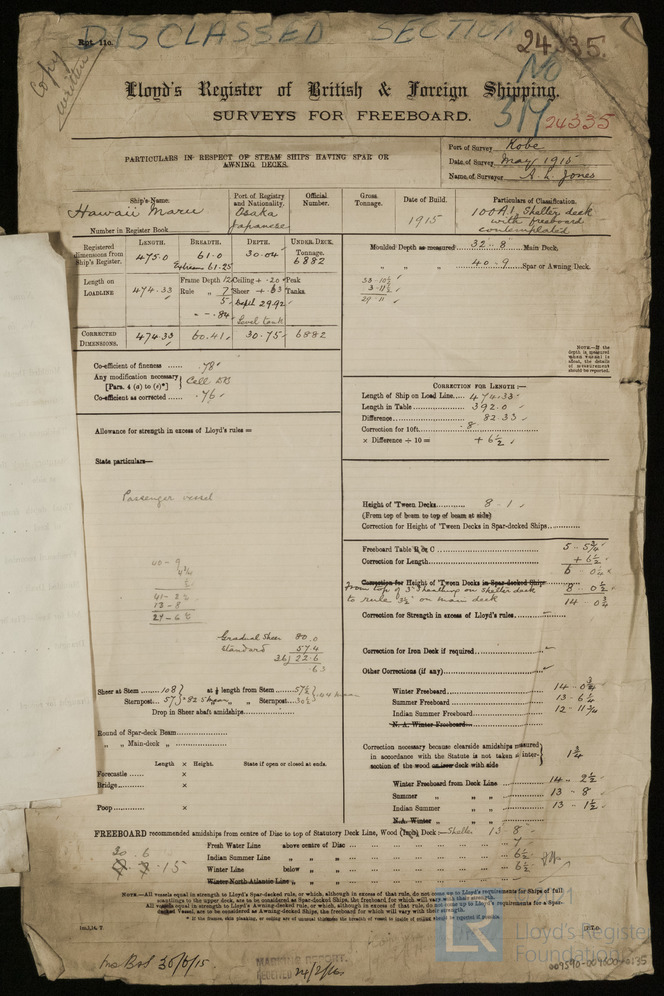 DISCLASSED SECTION
Rpt. 11c.
24335.
Copy
written
No
319
24335
Lloyd's Register of British & Foreign Shipping.
SURVEYS FOR FREEBOARD.
PARTICULARS IN RESPECT OF STEAM SHIPS HAVING SPAR OR
AWNING DECKS.
Port of Survey Kobe
Date of Survey May 1915
Name of Surveyor A. L. Jones
Ship's Name.
Hawaii Maru
Number in Register Book
Port of Registry
and Nationality.
Osaka
Japanese
Official
Number.
Gross
Tonnage.
Date of Build.
1915
Particulars of Classification.
100A1 Shelter deck
with freeboard
contemplated
Registered
dimensions from
Ship's Register.
LENGTH. BREADTH. DEPTH. UNDER DECK
Tonnage.
475.0 61.0 30.04 6882
Extreme 61.25
Length on
LOADLINE 474.33
Frame Depth 12
Rule " 7
5
.84
Ceiling + .20
Sheer + .63
Depth 29.92
Level tank
Peak
Tanks
CORRECTED
DIMENSIONS. 474.33 60.41 30.75 6882
Moulded Depth as measured 32 - 8 Main Deck.
" " " 40 - 9 Spar or Awning Deck.
33 - 10½
3 - 11½
29 - 11
NOTE.—If the
depth is measured
when vessel is
afloat, the details
of measurement
should be reported.
Co-efficient of fineness ...... .78
Any modification necessary
[Para. 4 (a) to (e)*] Cell DB
Co-efficient as corrected ...... .76
CORRECTION FOR LENGTH :—
Length of Ship on Load Line..... 474.33
Length in Table ............ 392.0
Difference ............ 82.33
Correction for 10ft............ .8
× Difference ÷ 10 = + 6½
Allowance for strength in excess of Lloyd's rules =
State particulars—
Passenger vessel
Height of 'Tween Decks........... 8 - 1
(From top of beam to top of beam at side)
Correction for Height of 'Tween Decks in Spar-decked Ships............
Freeboard Table B or C ............ 5 - 5¾
Correction for Length............ + 6½
6 - 0¼
Correction for Height of 'Tween Decks in Spar-decked Ships
From top of 3" sheathing on shelter deck
to rule 3½" on main deck 8 - 0½
14 - 0¾
Correction for Strength in excess of Lloyd's rules............
Correction for Iron Deck if required............
Other Corrections (if any)............
Gradual Sheer 80.0
Standard 57.4
36) 22.6
.63
Sheer at Stem ...... 108
Sternpost... 57
82.5 mean
at ⅛ length from Stem...... 57½
" " Sternpost... 30½
Drop in Sheer abaft amidships................
Round of Spar-deck Beam................
" " Main-deck "
Length × Height. State if open or closed at ends.
Forecastle ...... ×
Bridge............ ×
Poop ............ ×
Winter Freeboard............ 14 - 0¾
Summer Freeboard............ 13 - 6¼
Indian Summer Freeboard............ 12 - 11¾
N. A. Winter Freeboard............
Correction necessary because clearside amidships measured
in accordance with the Statute is not taken at inter-
section of the wood or iron deck with side 1¾
Winter Freeboard from Deck Line............ 14 - 2½
Summer " " " ............ 13 - 8
Indian Summer " " ............ 13 - 1½
N.A. Winter " " "
FREEBOARD recommended amidships from centre of Disc to top of Statutory Deck Line, Wood (Iron) Deck :— Shelter 13 - 8
Fresh Water Line above centre of Disc ............ 7
Indian Summer Line " " " ............ 6½
Winter Line below " " ............ 6½
Winter North Atlantic Line " " "
30 6
15
NOTE.—All vessels equal in strength to Lloyd's Spar-decked rule, or which, although in excess of that rule, do not come up to Lloyd's requirements for Ships of full
scantlings to the upper deck, are to be considered as Spar-decked Ships, the freeboard for which will vary with their strength.
All vessels equal in strength to Lloyd's Awning-decked rule, or which, although in excess of that rule, do not come up to Lloyd's requirements for a Spar-
decked Vessel, are to be considered as Awning-decked Ships, the freeboard for which will vary with their strength.
1m,1,14. T.
P.T.O.
30/6/15
MACHY REPORT.
RECEIVED 24/2/16
LR
Lloyd's Register
Foundation
009590-009600-0135